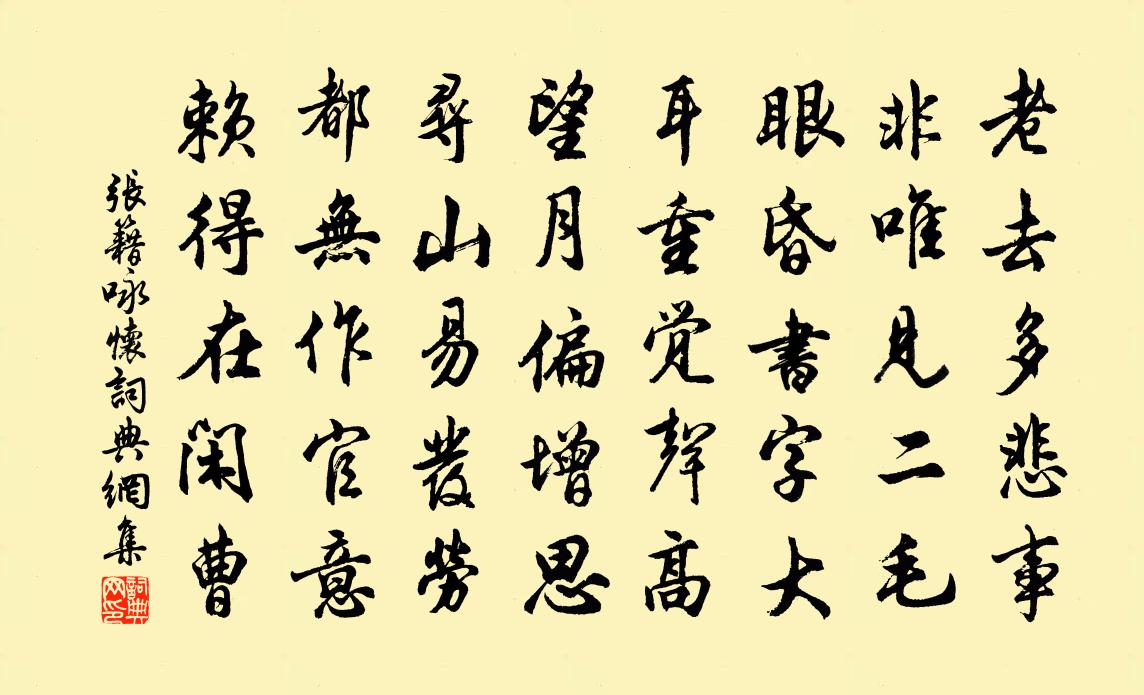 老去多悲事
非唯見二毛
眼昏書字大
耳重覺聲高
望月偏增思
尋山易發勞
都無作官意
賴得在閑曹
張籍咏懷詞典網集
詞典網印